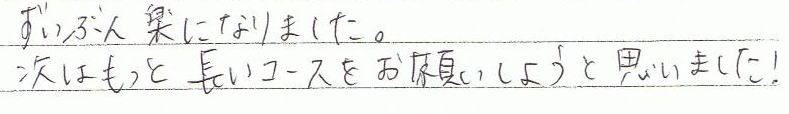 ずいぶん楽になりました。
次はもっと長いコースをお願いしようと思いました!